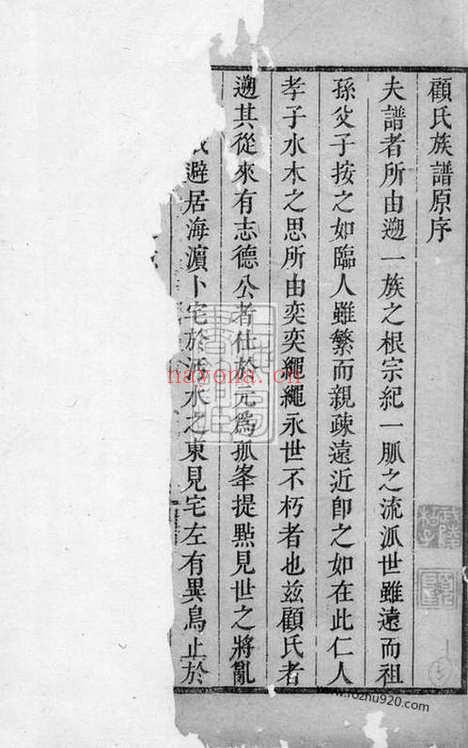 顧氏族譜原序
夫譜者所由遡一族之根宗紀一脈之流派世雖遠而祖
孫父子按之如臨人雖繁而親疎遠近卽之如在此仁人
孝子水木之思所由奕奕繩繩永世不朽者也茲顧氏者
遡其從來有志德公者仕於元爲孤峯提點見世之將亂
避居海濵卜宅於洦水之東見宅左有異鳥止於
nayona.cn
www.rozhu920.com